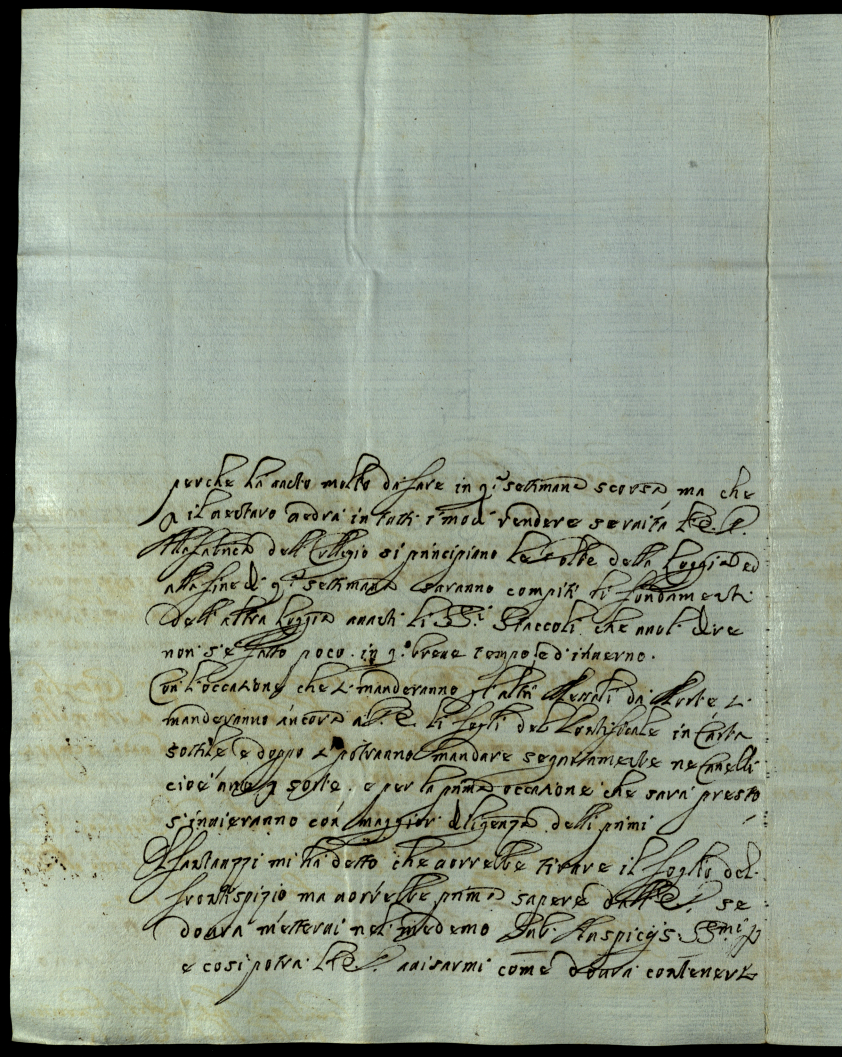 perche ha aucto molto da fare in q.ᵃ settimana scorsa, ma che
p il uenturo uedrà in tutti i modi rendere seruita V.E.
Alla fabrica dell Collegio si principiano le uolte della Loggia ed
alla fine di q.ᵃ settimana saranno compiti li fondamenti
dell'altra Loggia auanti li SS.ri Staccoli che uuol dire
non s'è fatto poco in q.o breue tempo, e d'inuerno.
Con l'occasione che si manderanno gl'altri Messali da Morte si
manderanno ancora a V.E. li fogli del Pontificale in Carta
sottile e doppo si potranno mandare seguitamente ne Canelli
cioè uno p sorte. e per la prima occasione che sarà presto
s'inuieranno con maggior diligenza delli primi
Il Fantauzzi mi ha detto che uorrebbe tirare il foglio del
frontispizio ma uorrebbe prima sapere dall'E.V. se
dourà metterui nel medemo Sub Auspicijs SS.mi P
e così potrà V.E. auisarmi come dourà contenersi